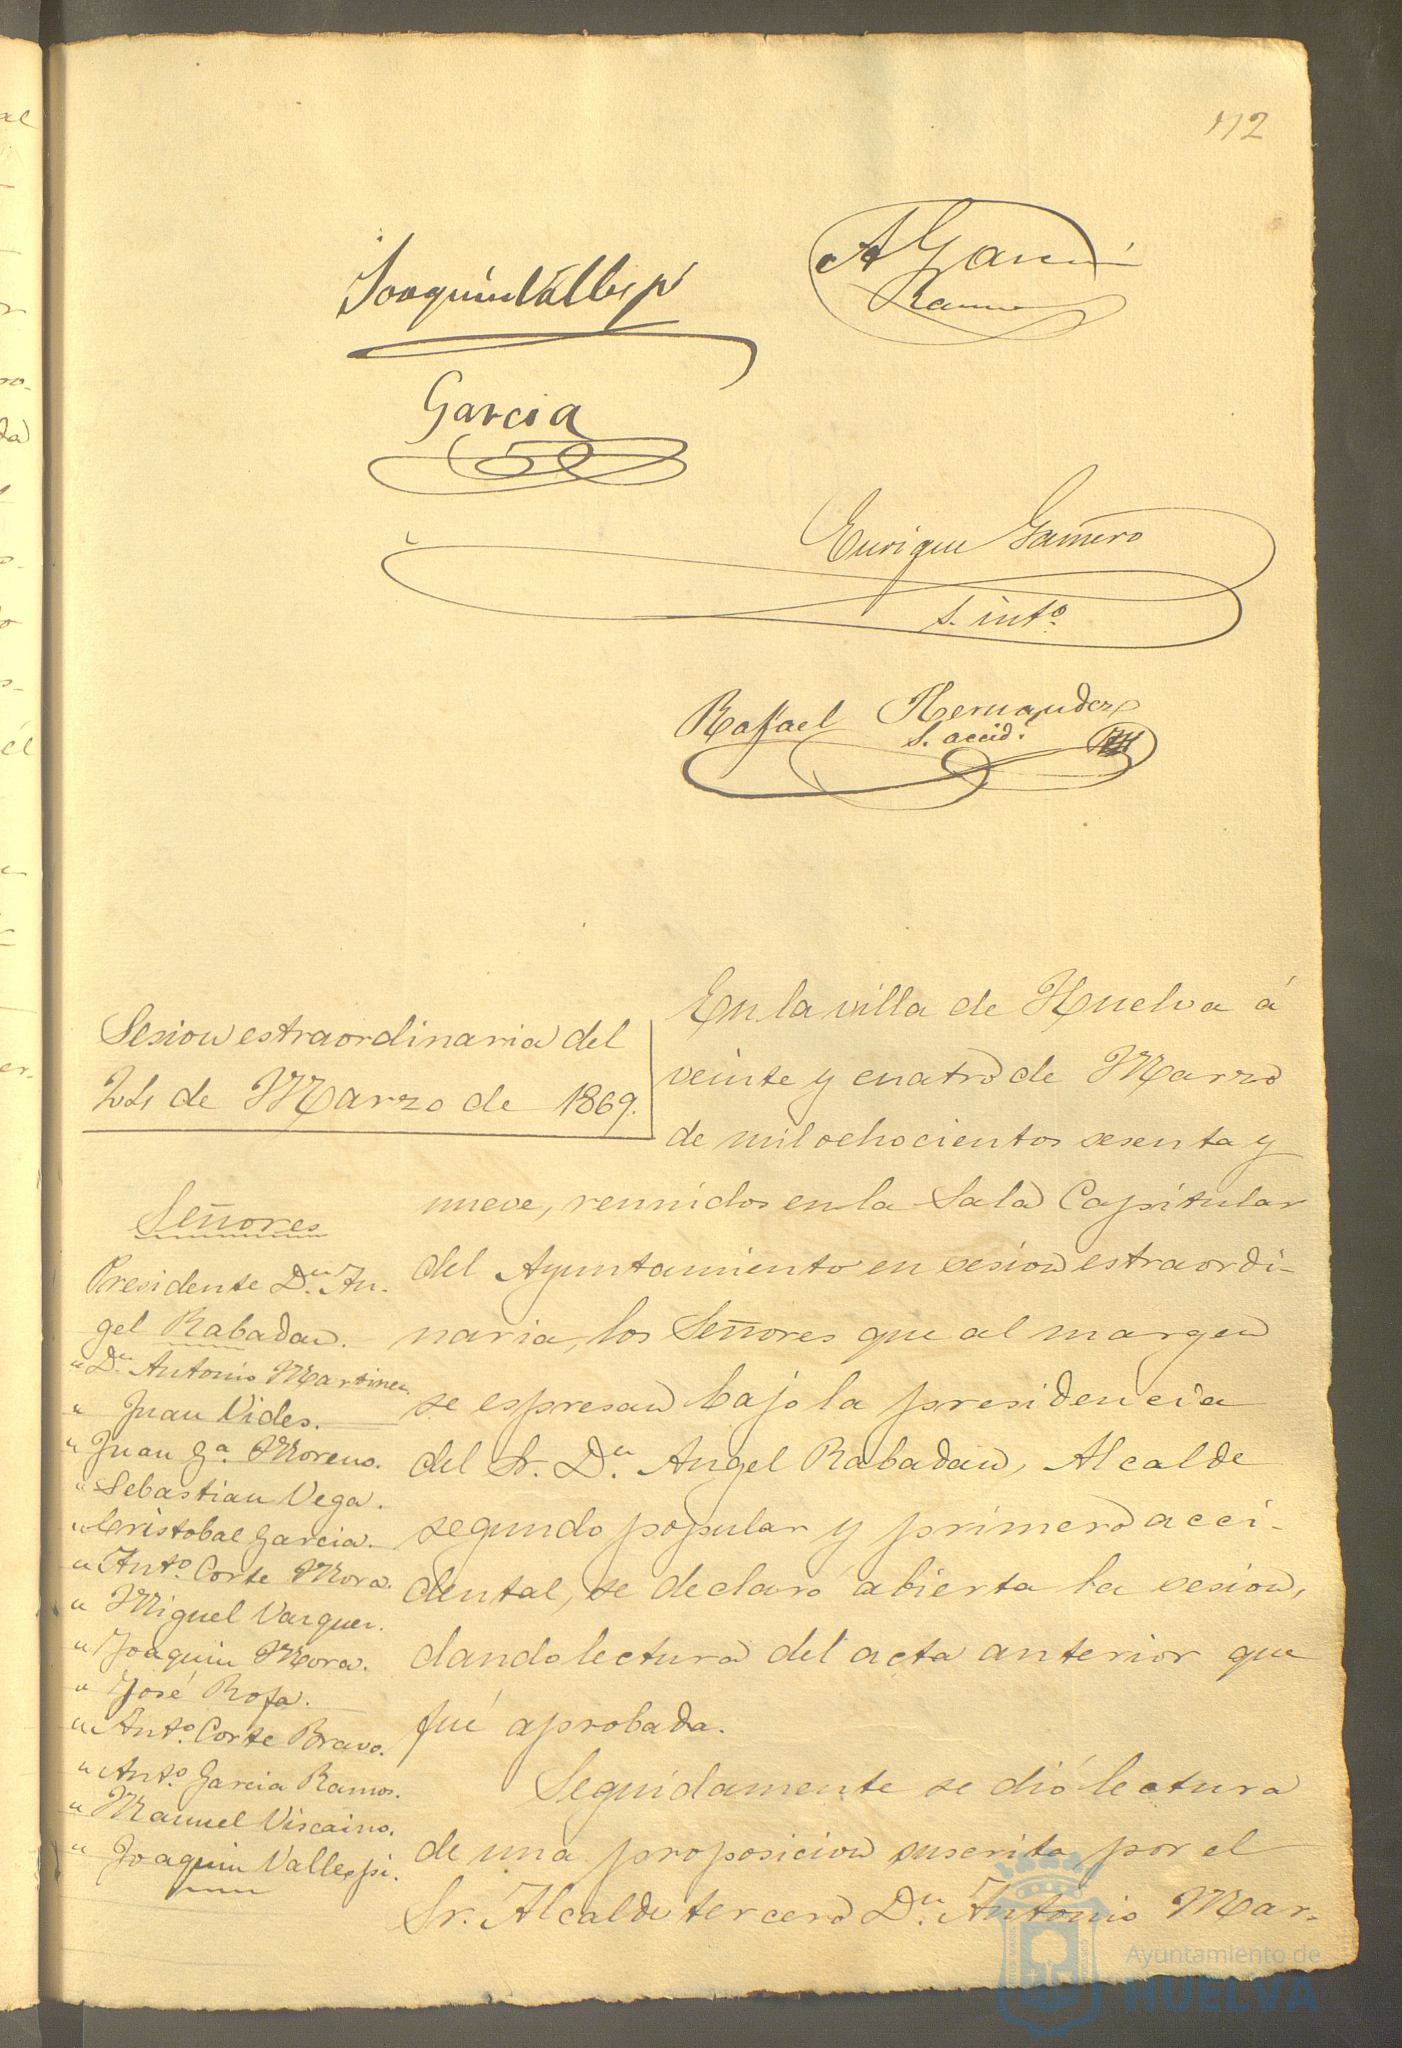 112
Joaquin Vallespi
A Garcia
Ramos
Garcia
Enrique Gamero
S. intº.
Rafael Hernandez
S. accid.l
Sesion estraordinaria del
24 de Marzo de 1869.
Señores
Presidente D.n An-
gel Rabadan.
" D.n Antonio Martinez.
" Juan Vides.
" Juan G.a Moreno.
" Sebastian Vega.
" Cristobal Garcia.
" Ant.º Corte Mora.
" Miguel Vazquez.
" Joaquin Mora.
" José Rofa.
" Ant.º Corte Bravo.
" Ant.º Garcia Ramos.
" Manuel Viscaino.
" Joaquin Vallespi.
En la villa de Huelva á
veinte y cuatro de Marzo
de mil ochocientos sesenta y
nueve, reunidos en la Sala Capitular
del Ayuntamiento en sesion estraordi-
naria, los Señores que al margen
se espresan bajo la presidencia
del Sr. D.n Angel Rabadan, Alcalde
segundo popular y primero acci-
dental, se declaró abierta la sesion,
dando lectura del acta anterior que
fué aprobada.
Seguidamente se dió lectura
de una proposicion suscrita por el
Sr. Alcalde tercero D.n Antonio Mar-
Ayuntamiento de
HUELVA